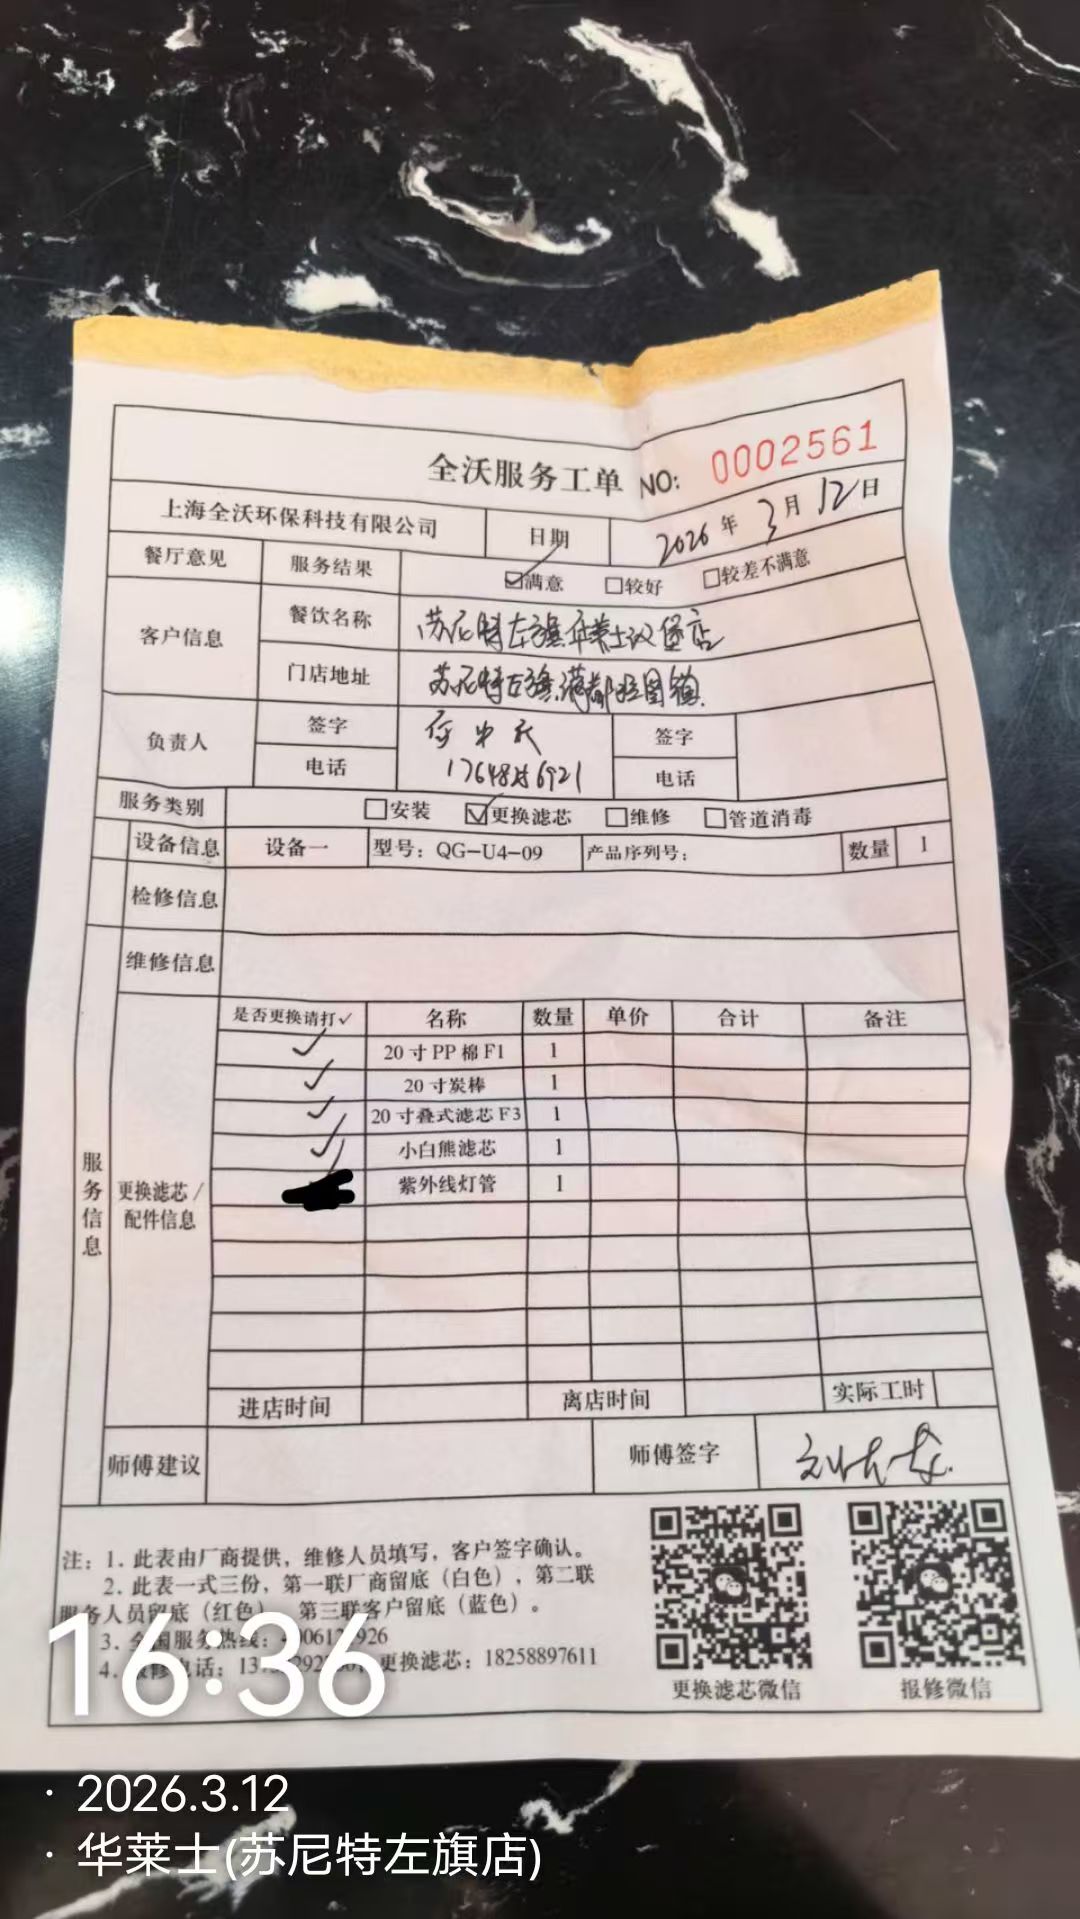 全沃服务工单 NO: 0002561
上海全沃环保科技有限公司 日期 2026年3月12日
餐厅意见 服务结果 ☑满意 □较好 □较差不满意
客户信息 餐饮名称 苏尼特左旗华莱士汉堡店
门店地址 苏尼特左旗满都拉图镇
负责人 签字 签字
电话 电话
服务类别 □安装 ☑更换滤芯 □维修 □管道消毒
设备信息 设备一 型号：QG-U4-09 产品序列号： 数量 1
检修信息
维修信息
服务信息
更换滤芯/配件信息
是否更换请打✓ 名称 数量 单价 合计 备注
✓ 20寸PP棉F1 1
✓ 20寸炭棒 1
✓ 20寸叠式滤芯F3 1
✓ 小白熊滤芯 1
紫外线灯管 1
进店时间 离店时间 实际工时
师傅建议 师傅签字
注：1. 此表由厂商提供，维修人员填写，客户签字确认。
2. 此表一式三份，第一联厂商留底（白色），第二联
服务人员留底（红色），第三联客户留底（蓝色）。
3. 全国服务热线：
4. 报修电话： 更换滤芯：18258897611
更换滤芯微信 报修微信
16:36
· 2026.3.12
· 华莱士(苏尼特左旗店)